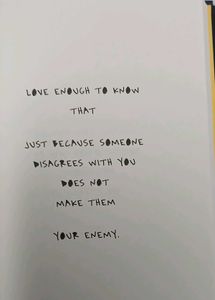 LOVE ENOUGH TO KNOW
THAT
JUST BECAUSE SOMEONE
DISAGREES WITH YOU
DOES NOT
MAKE THEM
YOUR ENEMY.